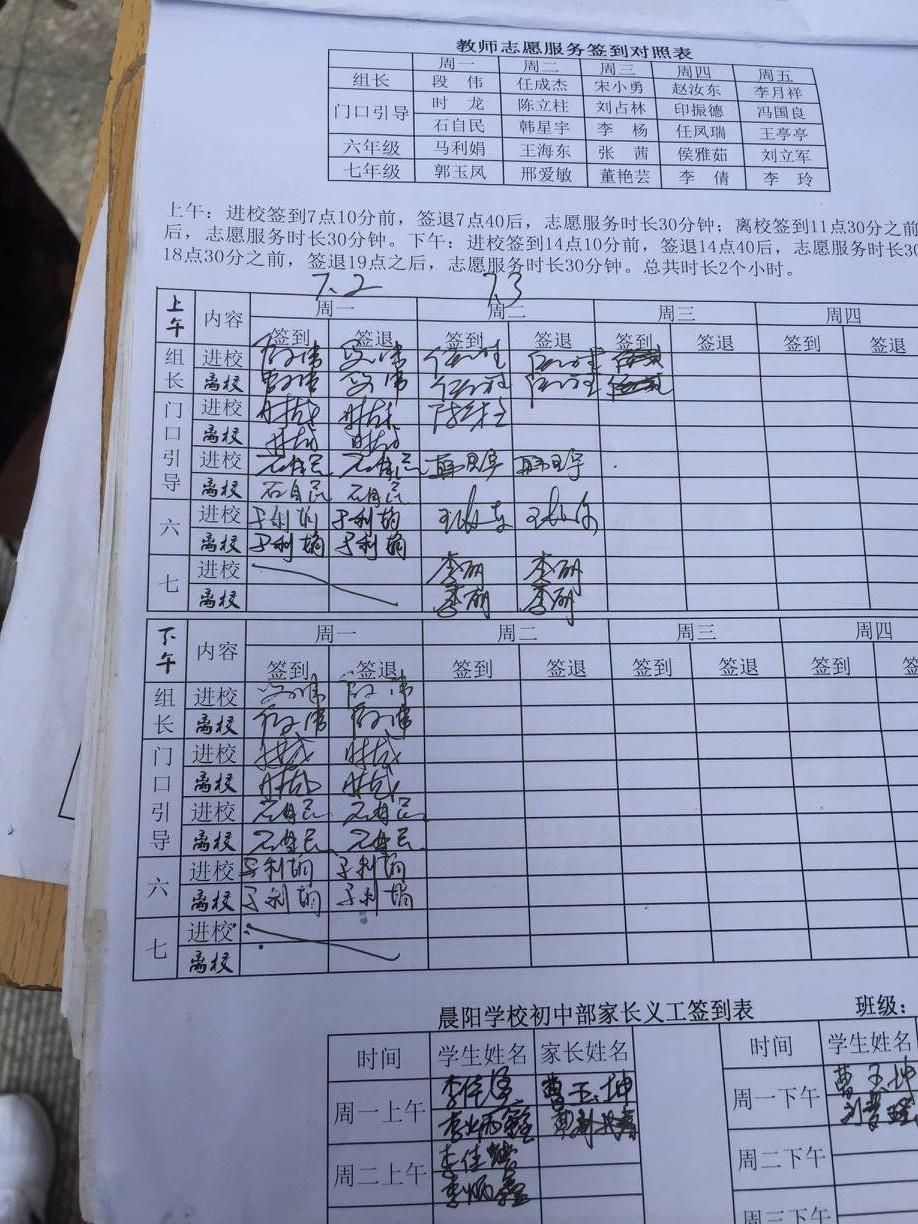 教师志愿服务签到对照表
周一 周二 周三 周四 周五
组长 段 伟 任成杰 宋小勇 赵汝东 李月祥
门口引导 时 龙 陈立柱 刘占林 印振德 冯国良
石自民 韩星宇 李 杨 任凤瑞 王亭亭
六年级 马利娟 王海东 张 茜 侯雅茹 刘立军
七年级 郭玉凤 邢爱敏 董艳芸 李 倩 李 玲
上午：进校签到7点10分前，签退7点40后，志愿服务时长30分钟；离校签到11点30分之前
后，志愿服务时长30分钟。下午：进校签到14点10分前，签退14点40后，志愿服务时长30
18点30分之前，签退19点之后，志愿服务时长30分钟。总共时长2个小时。
7.2 7.3
上午 内容 周一 周二 周三 周四
签到 签退 签到 签退 签到 签退 签到 签退
组长 进校 段伟 段伟
离校 段伟 段伟
门口引导 进校 时龙 时龙 陈立柱
离校 时龙 时龙
进校 石自民 石自民 韩星宇 韩星宇
离校 石自民 石自民
六 进校 马利娟 马利娟 王海东 王海东
离校 马利娟 马利娟
七 进校
离校
下午 内容 周一 周二 周三 周四
签到 签退 签到 签退 签到 签退 签到
组长 进校 段伟 段伟
离校 段伟 段伟
门口引导 进校 时龙 时龙
离校 时龙 时龙
进校 石自民 石自民
离校 石自民 石自民
六 进校 马利娟 马利娟
离校 马利娟 马利娟
七 进校
离校
晨阳学校初中部家长义工签到表 班级：
时间 学生姓名 家长姓名 时间 学生姓名
周一上午 曹玉坤 周一下午 曹玉坤
周二上午 周二下午
周三下午